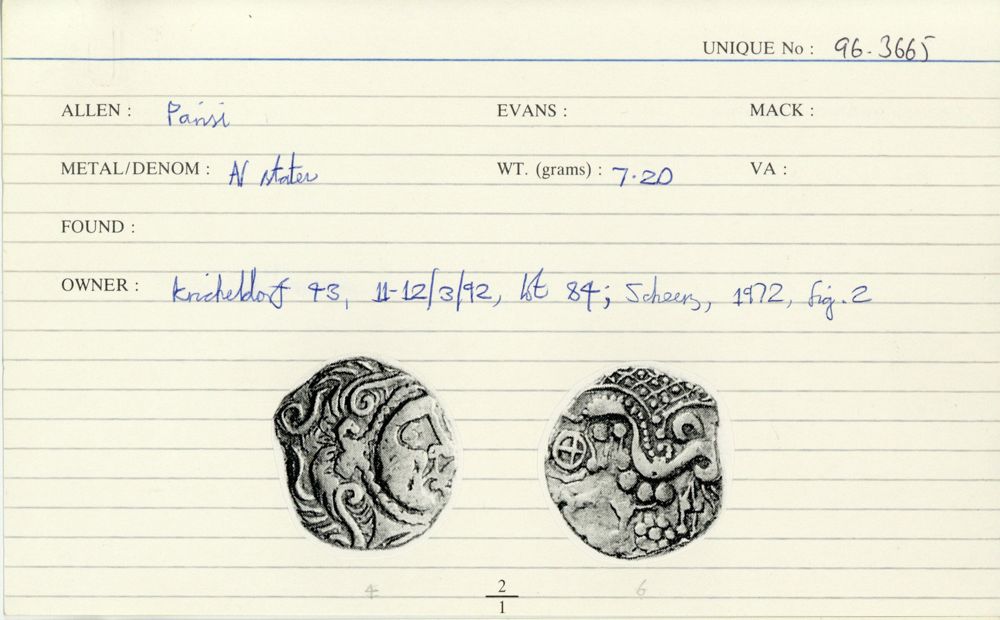 UNIQUE No : 96.3665
ALLEN : Parisi EVANS : MACK :
METAL/DENOM : AV stater WT. (grams) : 7.20 VA :
FOUND :
OWNER : Kricheldorf 43, 11-12/3/92, lot 84; Scheers, 1972, fig. 2
4 2/1 6